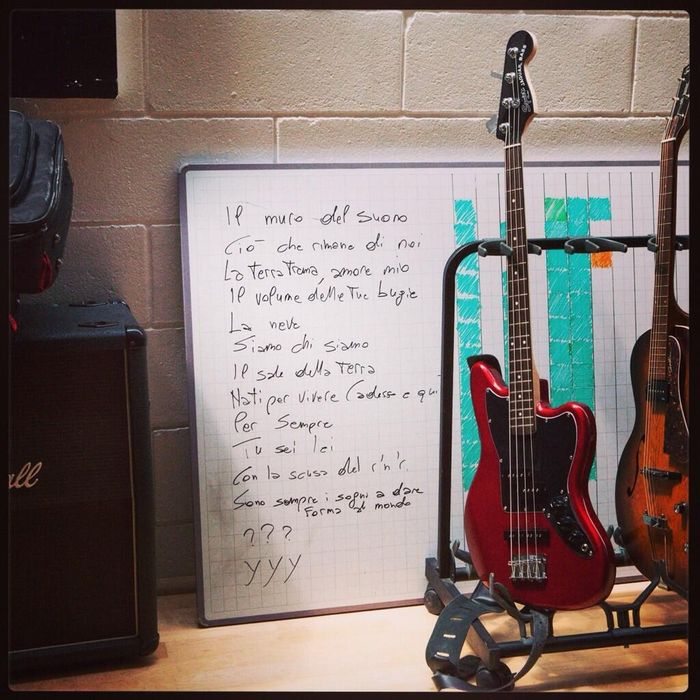 Il muro del suono
Ciò che rimane di noi
La terra trema, amore mio
Il volume delle tue bugie
La neve
Siamo chi siamo
Il sale della terra
Nati per vivere (adesso e qui
Per sempre
Tu sei lei
Con la scusa del r'n'r.
Sono sempre i sogni a dare
forma al mondo
???
yyy
Squier JAGUAR BASS
all